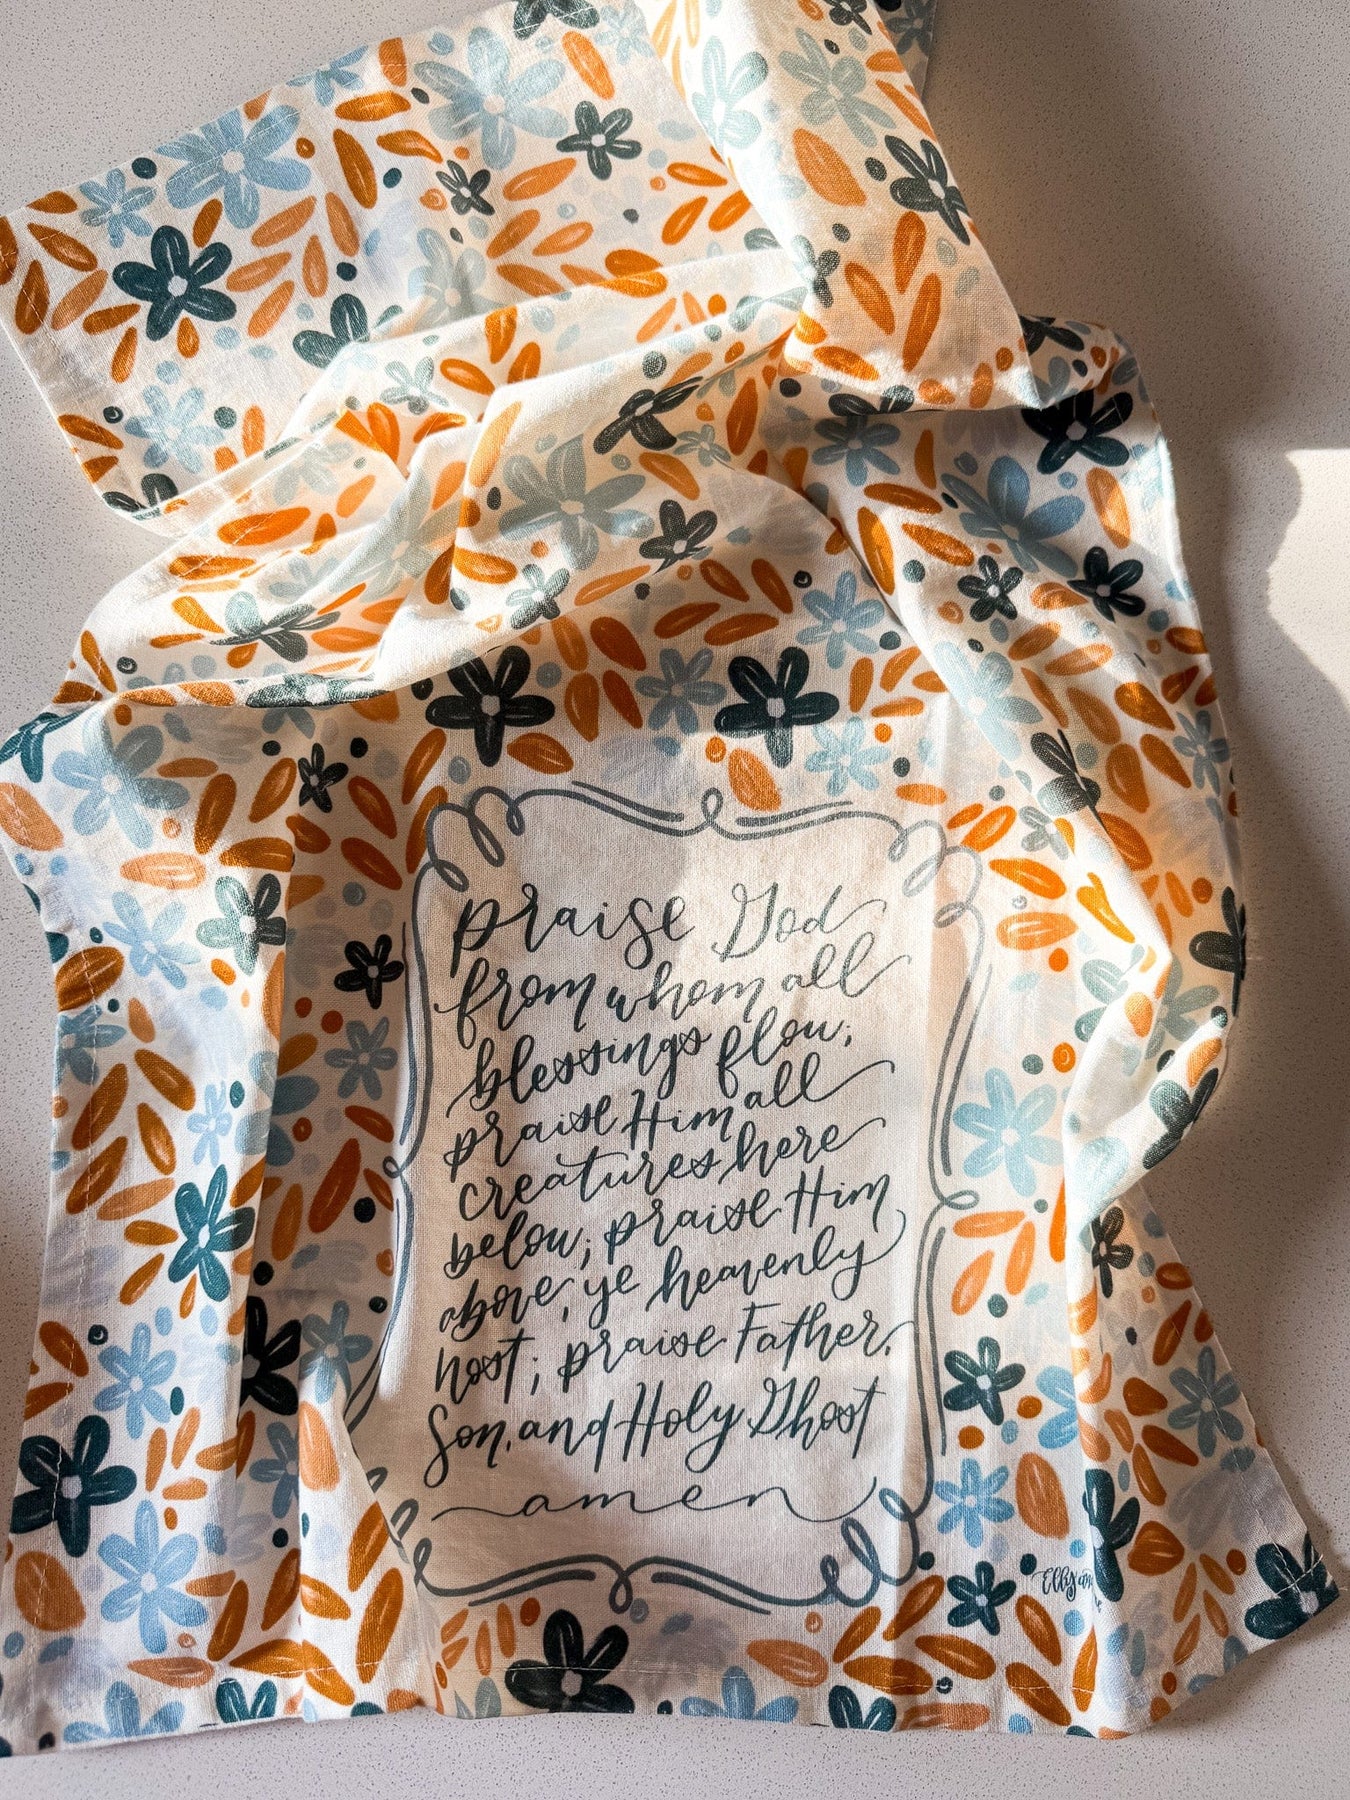 praise God
from whom all
blessings flow;
praise Him all
creatures here
below; praise Him
above, ye heavenly
host; praise Father,
Son, and Holy Ghost
amen
Elly and